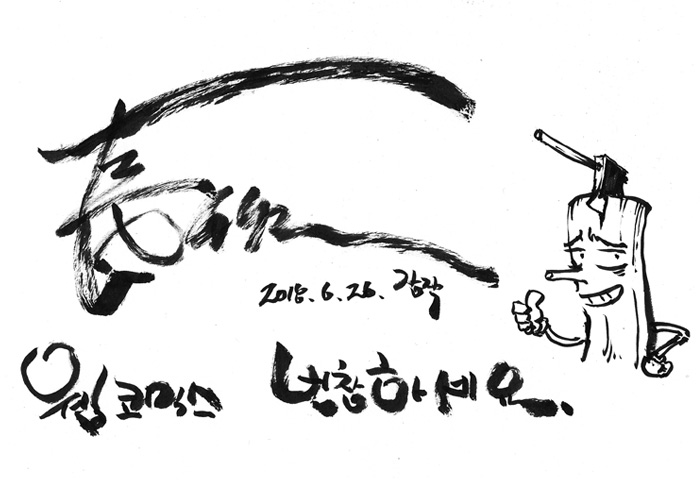 2018. 6. 26. 강작
웹코믹스 번창하세요.